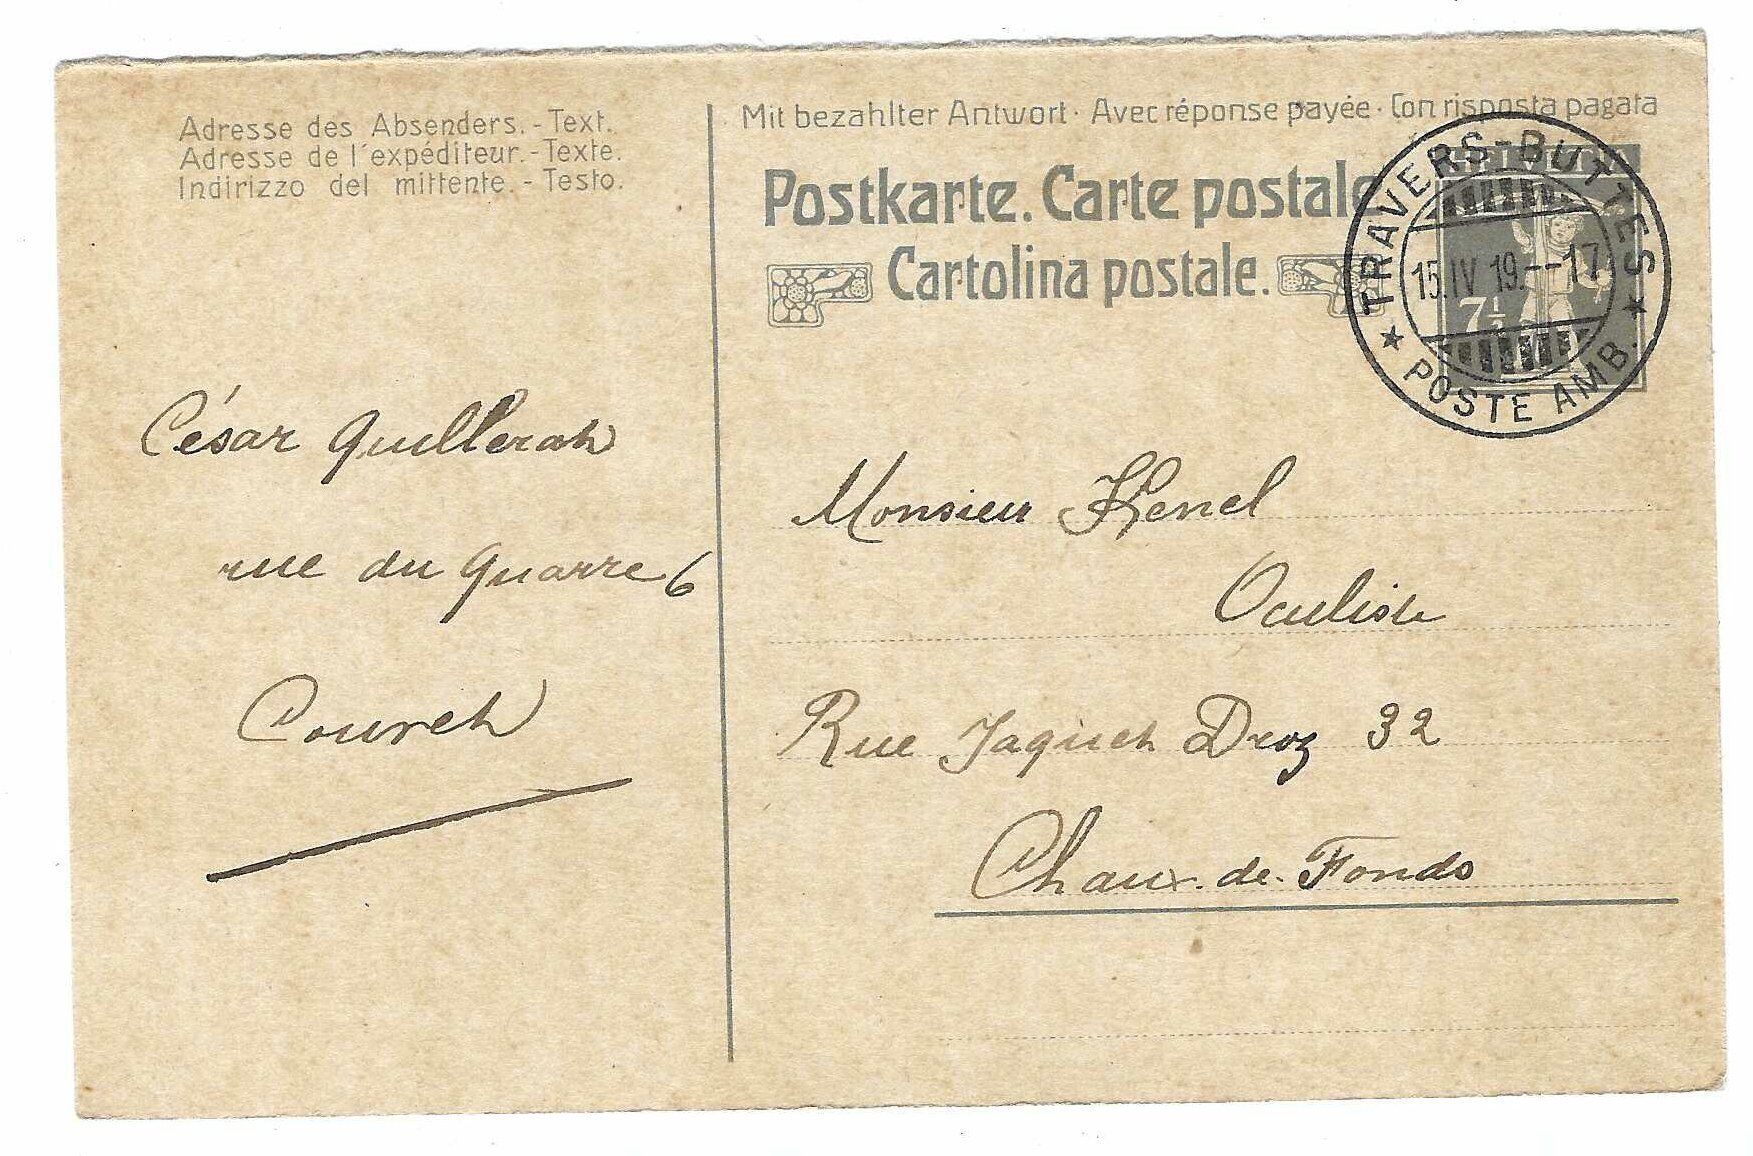 Adresse des Absenders. - Text.
Adresse de l'expéditeur. - Texte.
Indirizzo del mittente. - Testo.
César
rue du Quarre 6
Couvet
Mit bezahlter Antwort · Avec réponse payée · Con risposta pagata
Postkarte. Carte postale
Cartolina postale.
TRAVERS-BUTTES
15.IV 19.--17
★ POSTE AMB. ★
7½
Monsieur Kenel
Oculiste
Rue Jaquet Droz 32
Chaux-de-Fonds